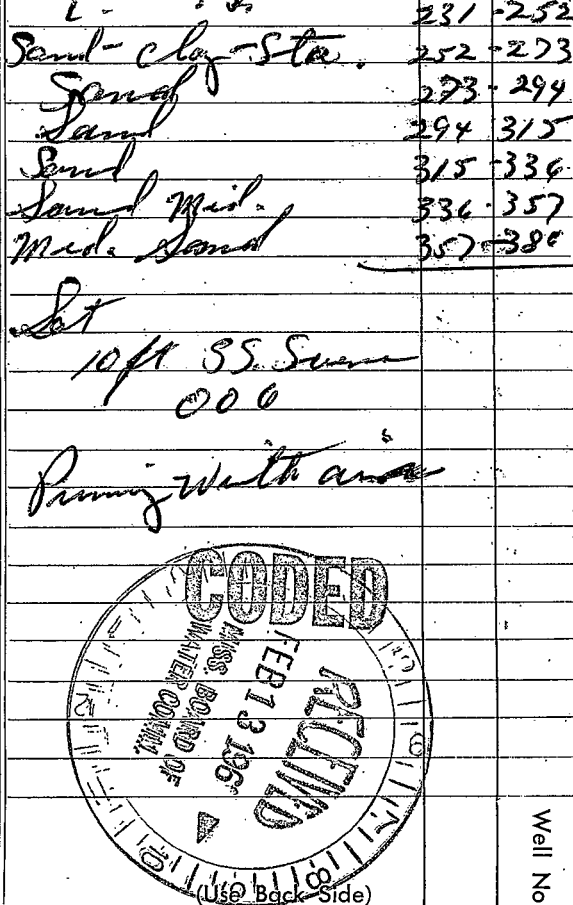 231-252
Sand-Clay-Sta. 252-273
Sand 273-294
Sand 294 315
Sand 315-336
Sand Mid. 336-357
Mid. Sand 357-38
Set
10 ft SS.
006
With
CODED
RECEIVED
FEB 13 196
MISS. BOARD OF
WATER COMM.
(Use Back Side)
Well No